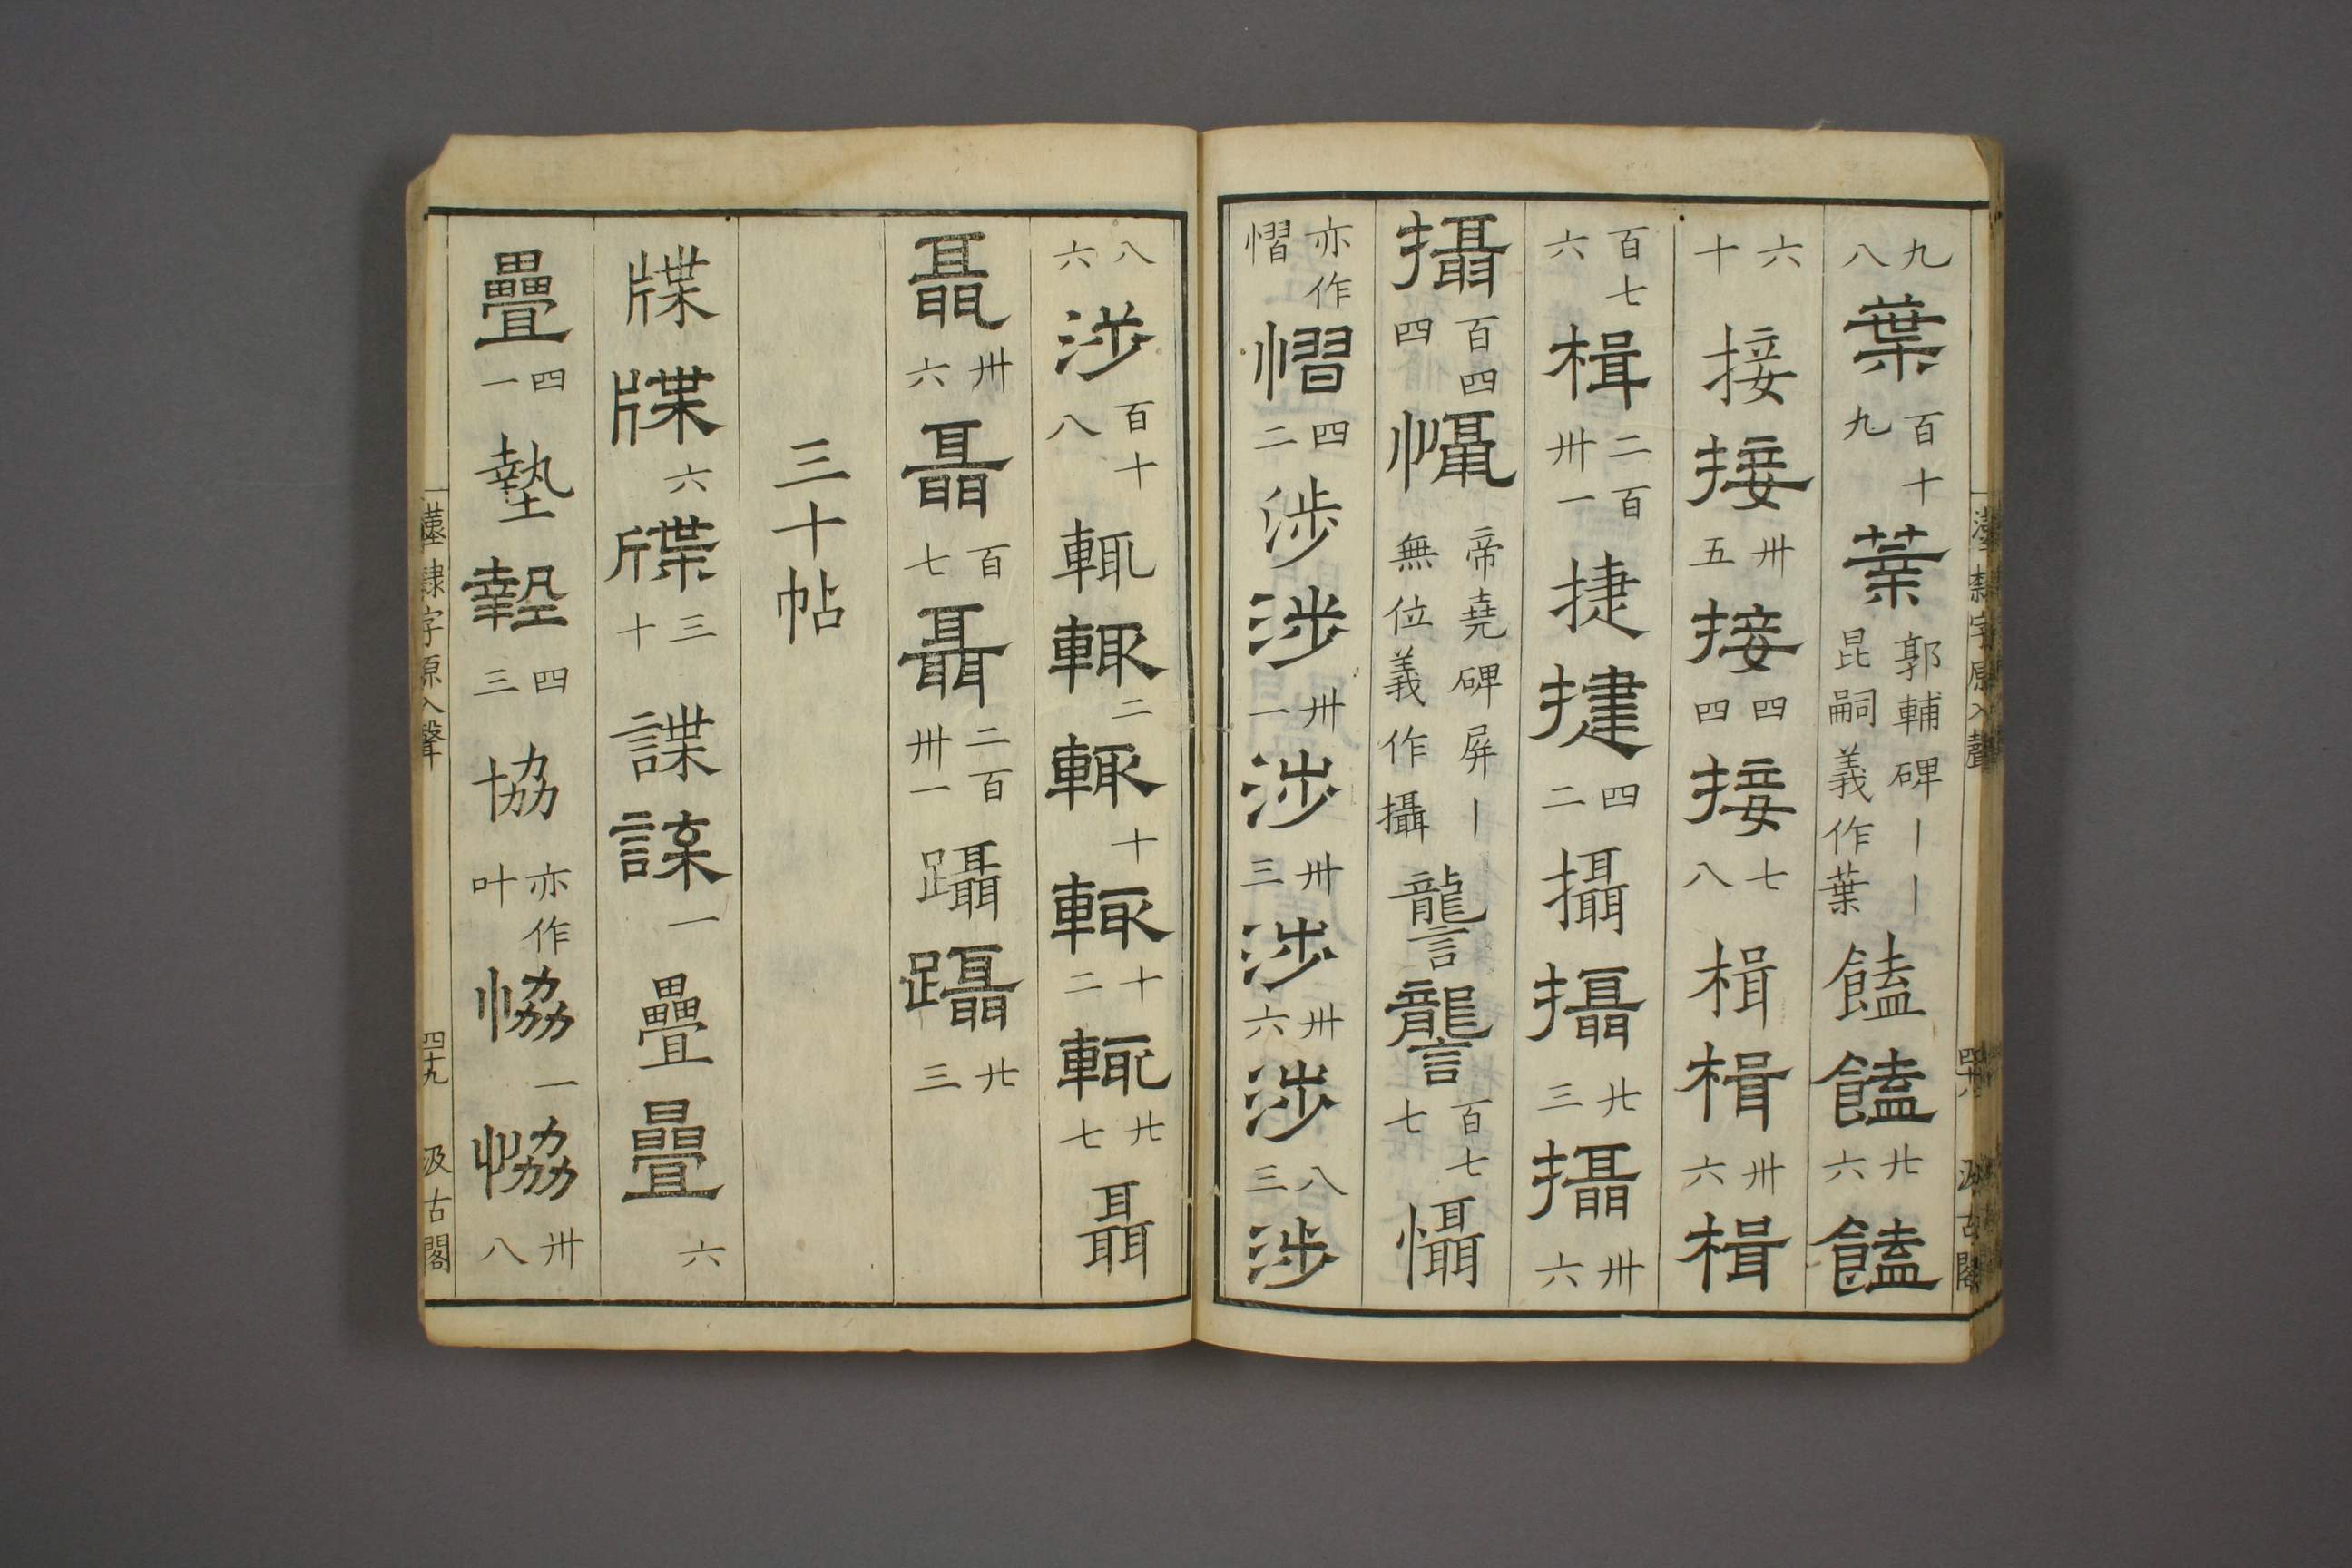 九八葉百十九葉郭輔碑｜｜昆嗣義作葉饁饁廿六饁
六十接接卅五接四四接七八楫楫卅六楫
百七六楫二百卅一捷捷四二攝攝廿三攝卅六
攝百四四㒤帝堯碑屏｜無位義作攝讋讋百七七懾
亦作慴慴四二涉涉卅一涉卅三涉卅六涉八三涉
漢隸字原入聲 四十八 汲古閣
八六涉百十八輒輒二輒十輒十二輒廿七聶
聶卅六聶百七聶二百卅一躡躡廿三
三十帖
牒牒六牒三十諜諜一疊疊六
疊四一墊墊四三協亦作叶協一協卅八
漢隸字原入聲 四十九 汲古閣